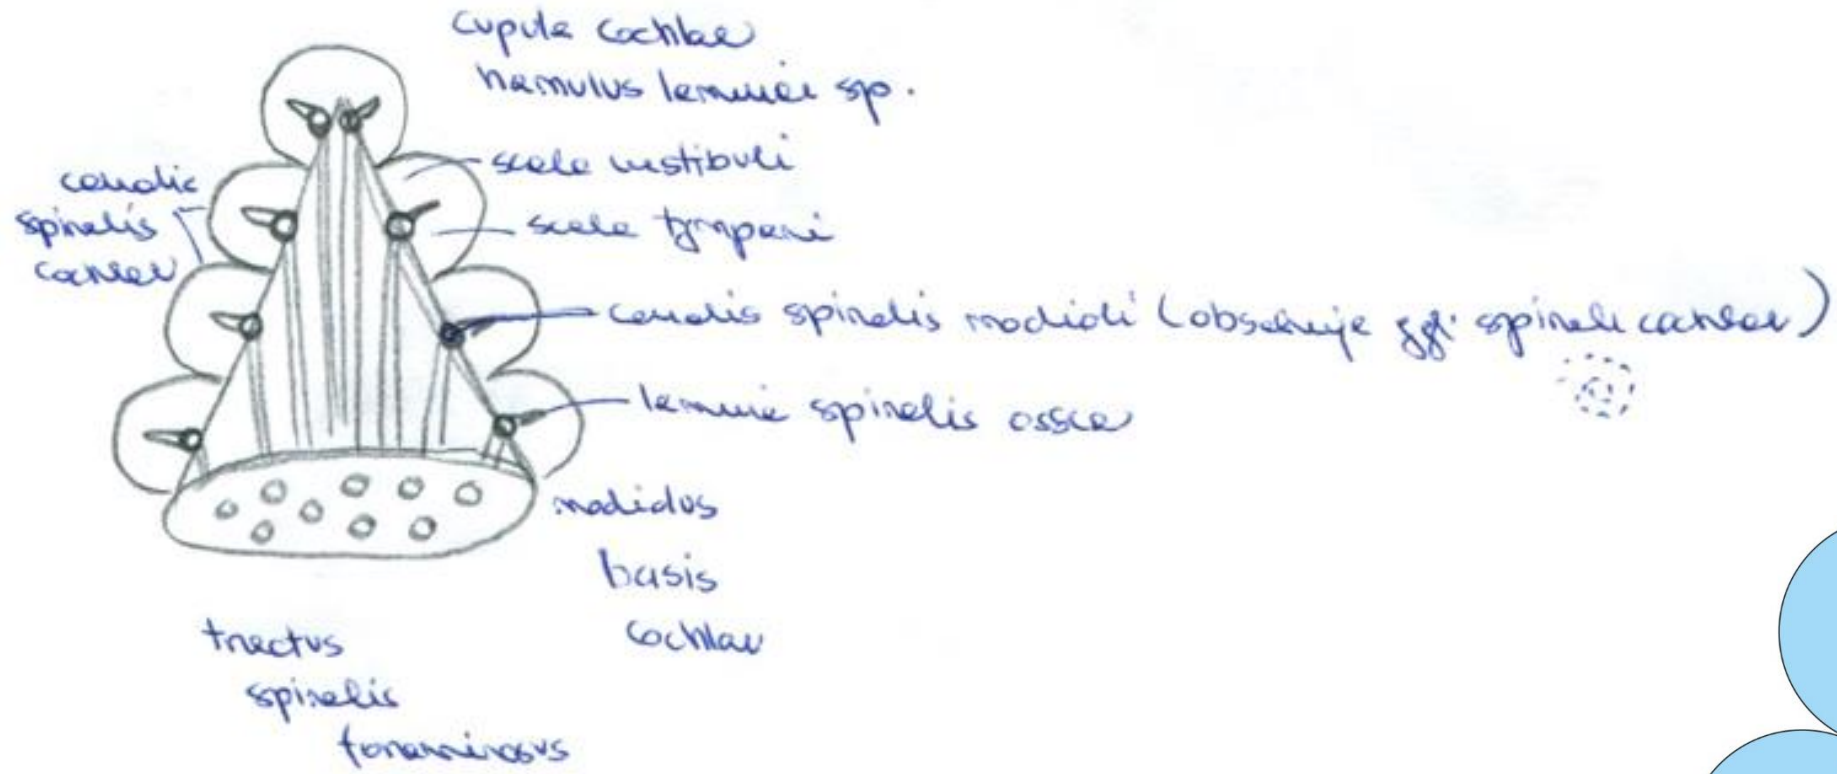 cupula cochlae
hamulus laminae sp.
scala vestibuli
canalis
spiralis
cochlae
scala tympani
canalis spiralis modioli (obsahuje ggl. spirale cochlae)
lamina spiralis ossea
modiolus
basis
cochlae
tractus
spiralis
foraminosus